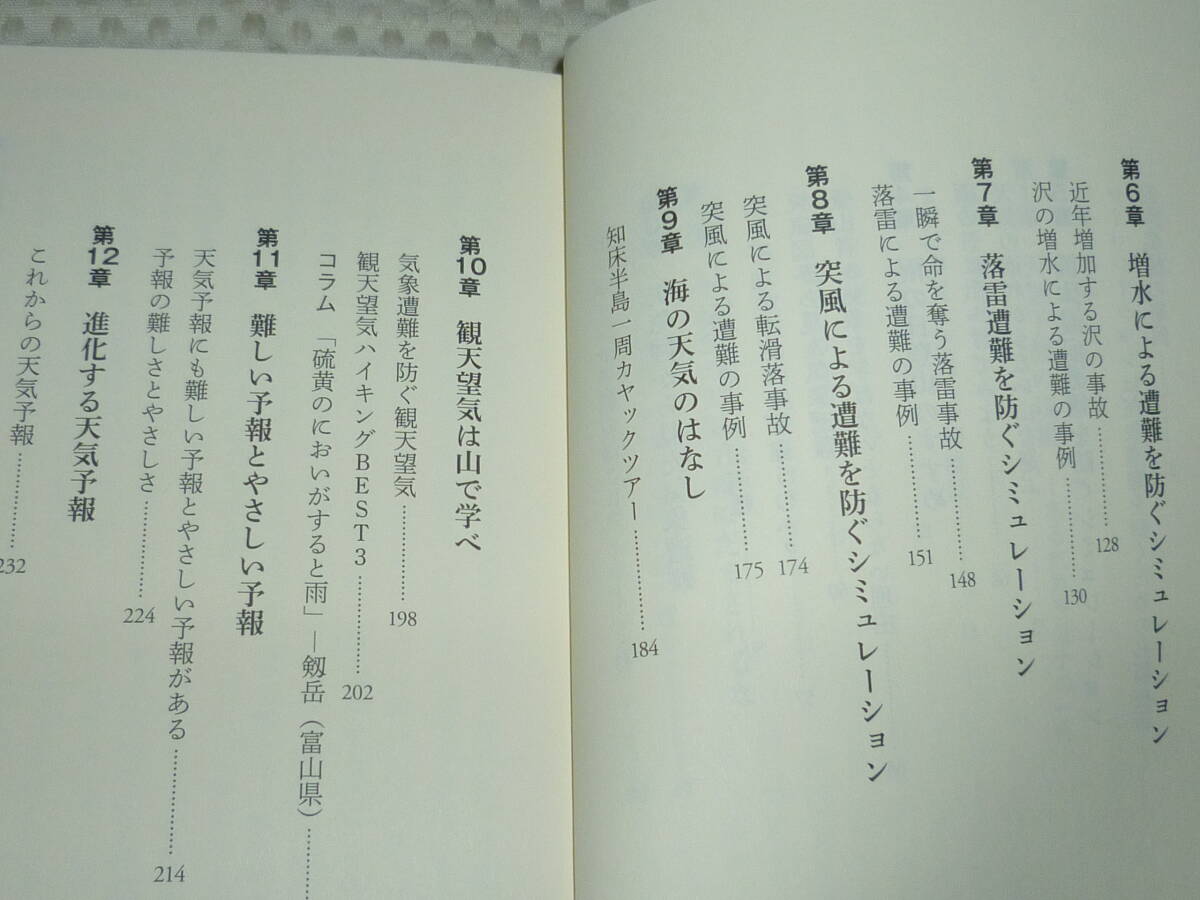 第6章 増水による遭難を防ぐシミュレーション
近年増加する沢の事故………128
沢の増水による遭難の事例………130
第7章 落雷遭難を防ぐシミュレーション
一瞬で命を奪う落雷事故………148
落雷による遭難の事例………151
第8章 突風による遭難を防ぐシミュレーション
突風による転滑落事故………174
突風による遭難の事例………175
第9章 海の天気のはなし
知床半島一周カヤックツアー………184
第10章 観天望気は山で学べ
気象遭難を防ぐ観天望気………198
観天望気ハイキングBEST3………202
コラム 「硫黄のにおいがすると雨」―剱岳(富山県)………
第11章 難しい予報とやさしい予報
天気予報にも難しい予報とやさしい予報がある………214
予報の難しさとやさしさ………224
第12章 進化する天気予報
これからの天気予報………232